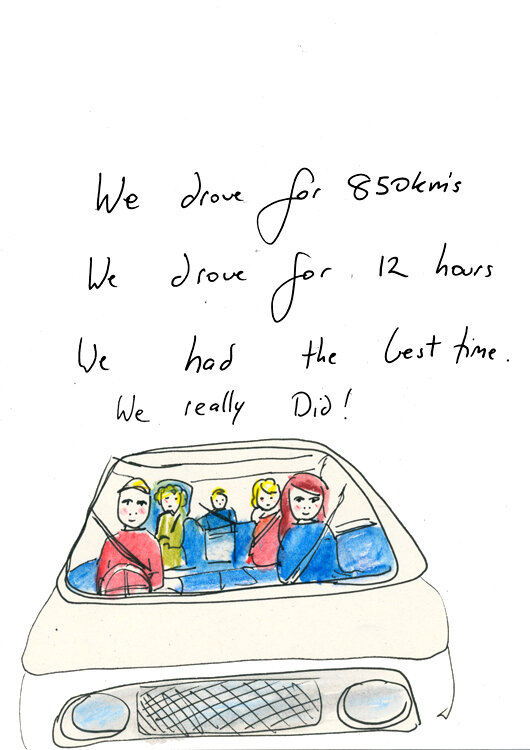 We drove for 850km's
We drove for 12 hours
We had the best time.
We really Did!